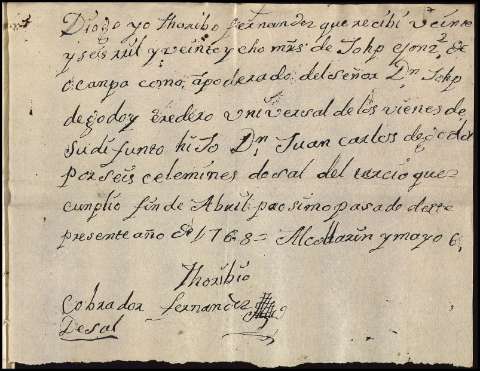 Digo yo thoribo fernandez que recibi veinte
y seis mil y veinte y cho mrs: de Johp
ocanpa como, apoderado: del señor Dn Johp
de godoy eredero vniversal de los vienes de
su difunto hiJo Dn Juan carlos de godoi
por seis celemines de sal del tercio que
cunplio fin de Abril procsimo pasado deste
presente año de 1768= Alcollarin y mayo 6,
Thoribio
Cobrador fernandez
De sal